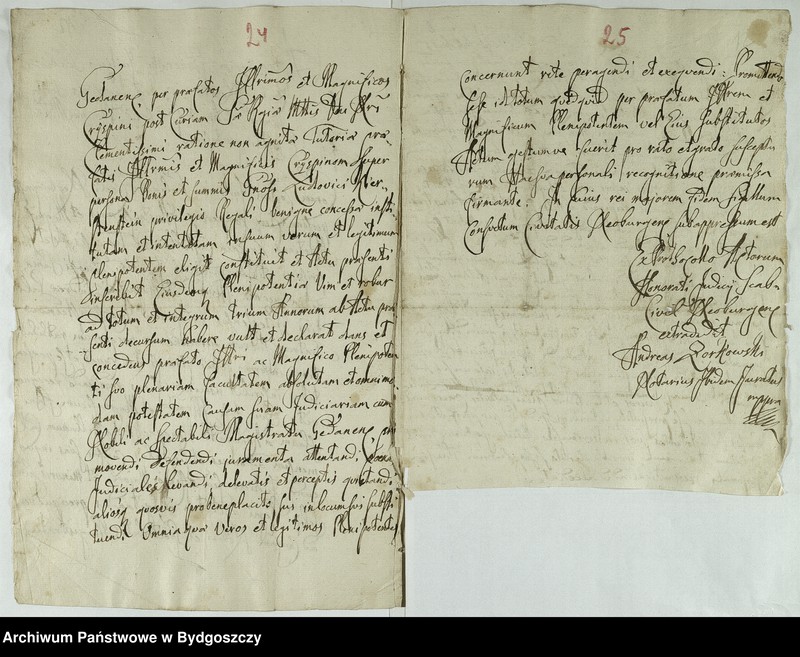 24
Gedanen per praefatos Illrimos et Magnificos
Cryspini post Curiam
Clementissimi ratione non agnita Tutoria prae
fati Illrmis et Magnificis Cryspinom super
persona Bonis et summis Ludovici
privilegio Regali benigne concessa insti
tutam et intentatam suum verum et legitimum
plenipotentem eligit constituit et Actu praesenti
inscribit Plenipotentia Vim et robur
ad totum et integrum trium Annorum ab Actu prae
senti decursum habere vult et declarat dans et
concedens praefato Illri ac Magnifico Plenipoten
ti suo plenariam facultatem absolutam et omnimo
dam potestatem Causam suam Judiciariam cum
Nobili ac Spectabili Magistratu Gedanen pro
movendi defendendi juramenta attentandi
Judiciales levandi de levatis et perceptis quietandi
aliosq quosvis pro beneplacito sui in locum sui substi
tuendi Omnia qua Veros et legitimos Plenipotentes
25
Concernunt rite peragendi et exequendi: Promittendo
sese id totum quidquid per praefatum Illrem et
Magnificum Plenipotentem vel Ejus Substitutos
Actum gestumve fuerit pro rato et grato suscepturum
rum Hac sua personali recognitione praemissa
firmante. In cuius rei majorem fidem Sigillum
Consvetum Civitatis subappressum est
Ex Prothocollo Actorum
Honorati Judicij Scab
Civil
extradidit
Andreas Zorkowski
Notarius Ibidem Juratus
mppra
Archiwum Państwowe w Bydgoszczy